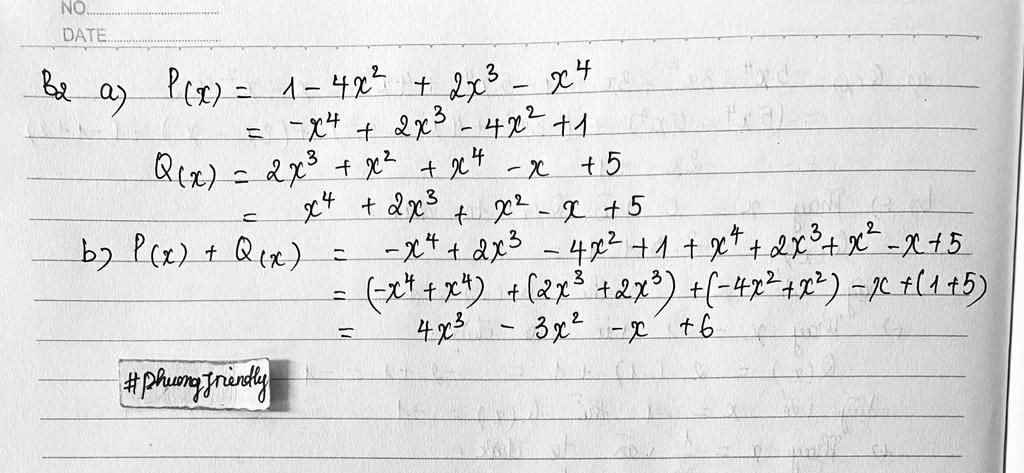 NO.
DATE
B2 a) P(x) = 1 - 4x² + 2x³ - x⁴
= -x⁴ + 2x³ - 4x² + 1
Q(x) = 2x³ + x² + x⁴ - x + 5
= x⁴ + 2x³ + x² - x + 5
b) P(x) + Q(x) = -x⁴ + 2x³ - 4x² + 1 + x⁴ + 2x³ + x² - x + 5
= (-x⁴ + x⁴) + (2x³ + 2x³) + (-4x² + x²) - x + (1 + 5)
= 4x³ - 3x² - x + 6
#phuongfriendly